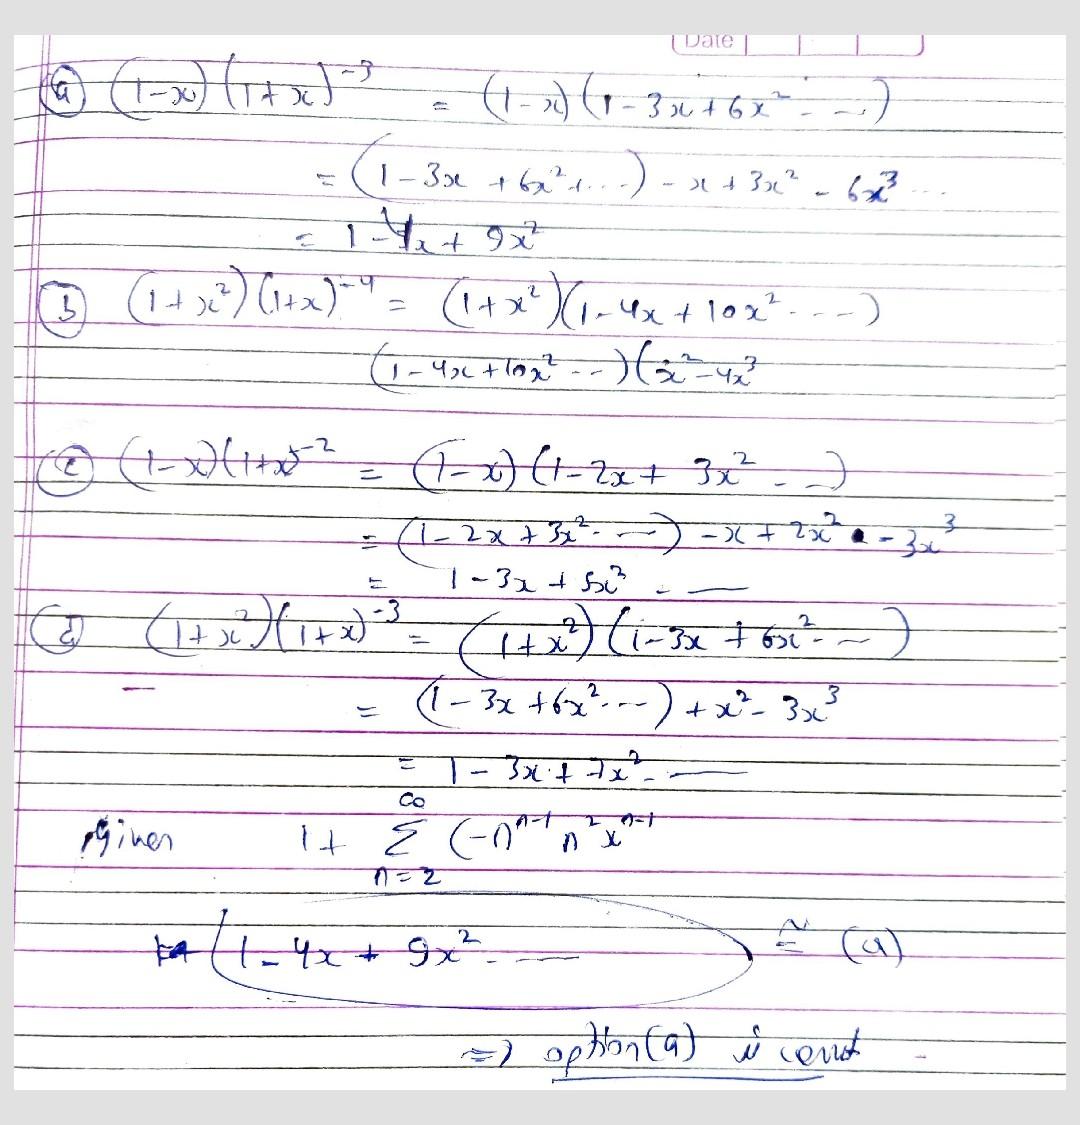 Date
(a) (1-x) (1+x)^-3 = (1-x) (1-3x+6x^2 - ---)
= (1-3x+6x^2+....) - x + 3x^2 - 6x^3 ...
= 1-4x+9x^2
(b) (1+x^2)(1+x)^-4 = (1+x^2)(1-4x+10x^2 ----)
(1-4x+10x^2 ---)(x^2-4x^3
(c) (1-x)(1+x)^-2 = (1-x)(1-2x+3x^2 - --)
= (1-2x+3x^2- ---) -x+2x^2 - 3x^3
= 1-3x+5x^2 - ---
(d) (1+x^2)(1+x)^-3 = (1+x^2)(1-3x+6x^2- --)
= (1-3x+6x^2----) +x^2-3x^3
= 1-3x+7x^2- ---
Given 1+ ∞Σn=2 (-1)^n-1 n^2 x^n-1
(1-4x+9x^2- --- ≅ (a)
=> option (a) is